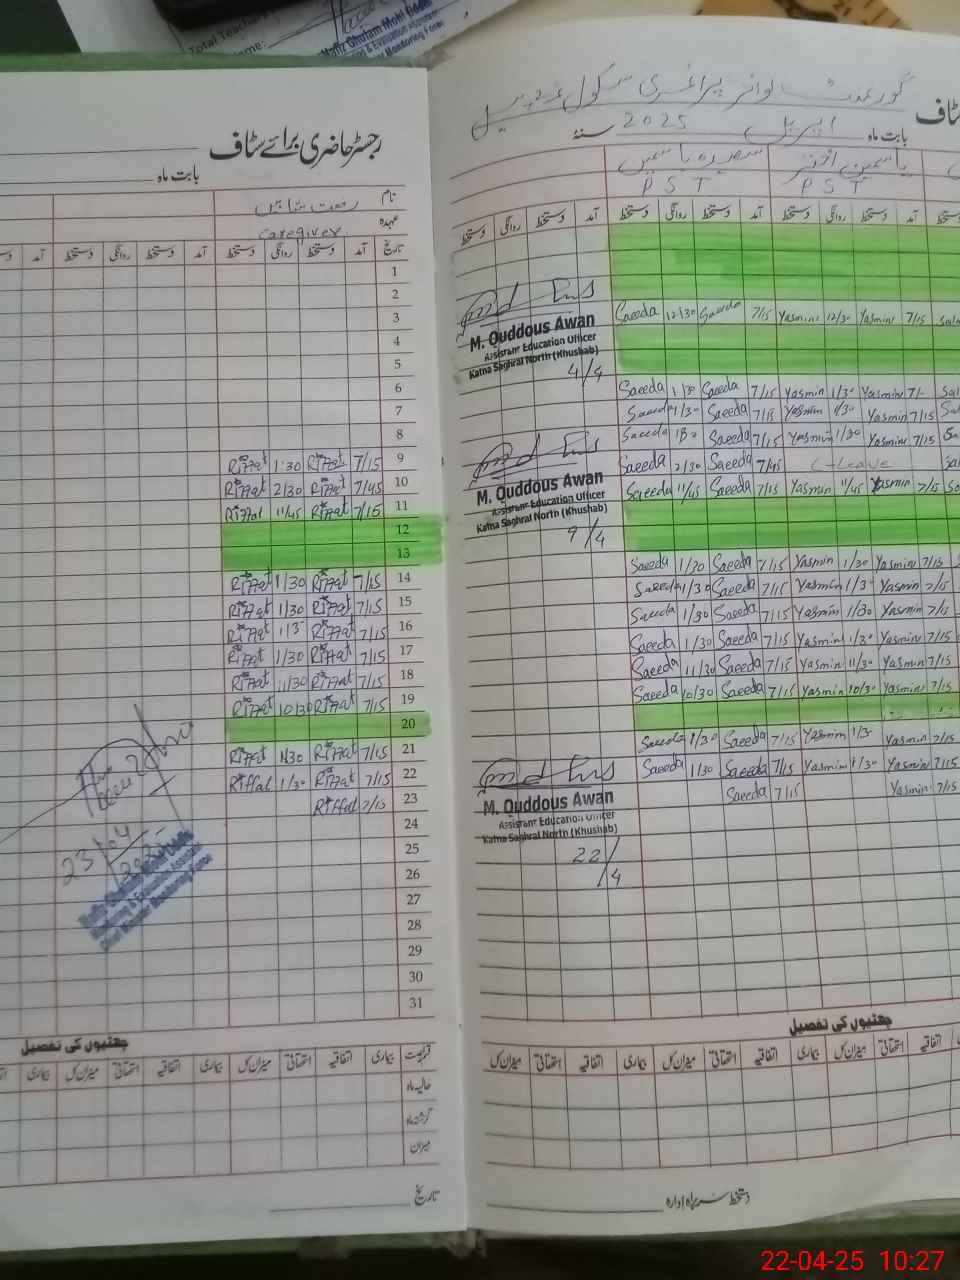 Total Teache
Name:
Hafiz Ghulam Mohi
Monitoring Force
رجسٹر حاضری برائے سٹاف
بابت ماہ
نام رفعت شاہین
عہدہ caregiver
تاریخ آمد دستخط روانگی دستخط آمد دستخط روانگی دستخط آمد
1
2
3
4
5
6
7
8
9 7/15 Riffat 1:30 Riffat
10 7/45 Riffat 2/30 Riffat
11 7/15 Riffat 11/45 Riffat
12
13
14 7/15 Riffat 1/30 Riffat
15 7/15 Riffat 1/30 Riffat
16 7/15 Riffat 1/3 Riffat
17 7/15 Riffat 1/30 Riffat
18 7/15 Riffat 11/30 Riffat
19 7/15 Riffat 10/30 Riffat
20
21 7/15 Riffat 1/30 Riffat
22 7/15 Riffat 1/30 Riffat
23 7/15 Riffat
24
25
26
27
28
29
30
31
23/04/2025
چھٹیوں کی تفصیل
قسم بیماری اتفاقیہ استحقاقی میزان کل بیماری اتفاقیہ استحقاقی میزان کل بیماری
حالیہ ماہ
گزشتہ ماہ
میزان
تاریخ
گورنمنٹ بوائز پرائمری سکول
بابت ماہ اپریل سنۂ 2025
یاسمین اختر سعیدہ یاسمین
PST PST
آمد دستخط روانگی دستخط آمد دستخط روانگی دستخط آمد دستخط روانگی دستخط
7/15 Yasmin 12/30 Yasmin 7/15 Saeeda 12/30 Saeeda
M. Quddous Awan
Assistant Education Officer
Katha Saghral North (Khushab)
4/4
Yasmin 1/30 Yasmin 7/15 Saeeda 1/30 Saeeda
7/15 Yasmin 1/30 Yasmin 7/15 Saeeda 1/30 Saeeda
7/15 Yasmin 1/30 Yasmin 7/15 Saeeda Saeeda
C-Leave 7/45 Saeeda 2/30 Saeeda
7/15 Yasmin 11/45 Yasmin 7/15 Saeeda 11/45 Saeeda
M. Quddous Awan
Assistant Education Officer
Katha Saghral North (Khushab)
9/4
7/15 Yasmin 1/30 Yasmin 7/15 Saeeda 1/30 Saeeda
7/15 Yasmin 1/3 Yasmin 7/15 Saeeda 1/30 Saeeda
7/15 Yasmin 1/30 Yasmin 7/15 Saeeda 1/30 Saeeda
7/15 Yasmin 1/30 Yasmin 7/15 Saeeda 1/30 Saeeda
7/15 Yasmin 11/30 Yasmin 7/15 Saeeda 11/30 Saeeda
7/15 Yasmin 10/30 Yasmin 7/15 Saeeda 10/30 Saeeda
7/15 Yasmin 1/3 Yasmin 7/15 Saeeda 1/30 Saeeda
7/15 Yasmin 1/30 Yasmin 7/15 Saeeda 1/30 Saeeda
7/15 Yasmin 7/15 Saeeda
M. Quddous Awan
Assistant Education Officer
Katha Saghral North (Khushab)
22/4
چھٹیوں کی تفصیل
اتفاقیہ استحقاقی میزان کل بیماری اتفاقیہ استحقاقی میزان کل بیماری اتفاقیہ استحقاقی میزان کل
دستخط سربراہ ادارہ
22-04-25 10:27